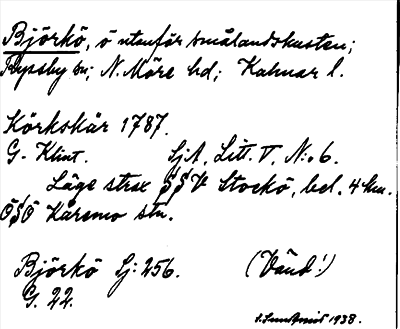 Björkö, ö utanför smålandskusten;
Ryssby sn; N. Möre hd; Kalmar l.
Körkskär 1787.
G. Klint. SjA, Litt. V, N:o 6.
Läge strax S§V Stockö, bel. 4 km.
Ö§Ö Karsmo stn.
Björkö Lj: 256. (Vänd!)
G. 22.
1938.